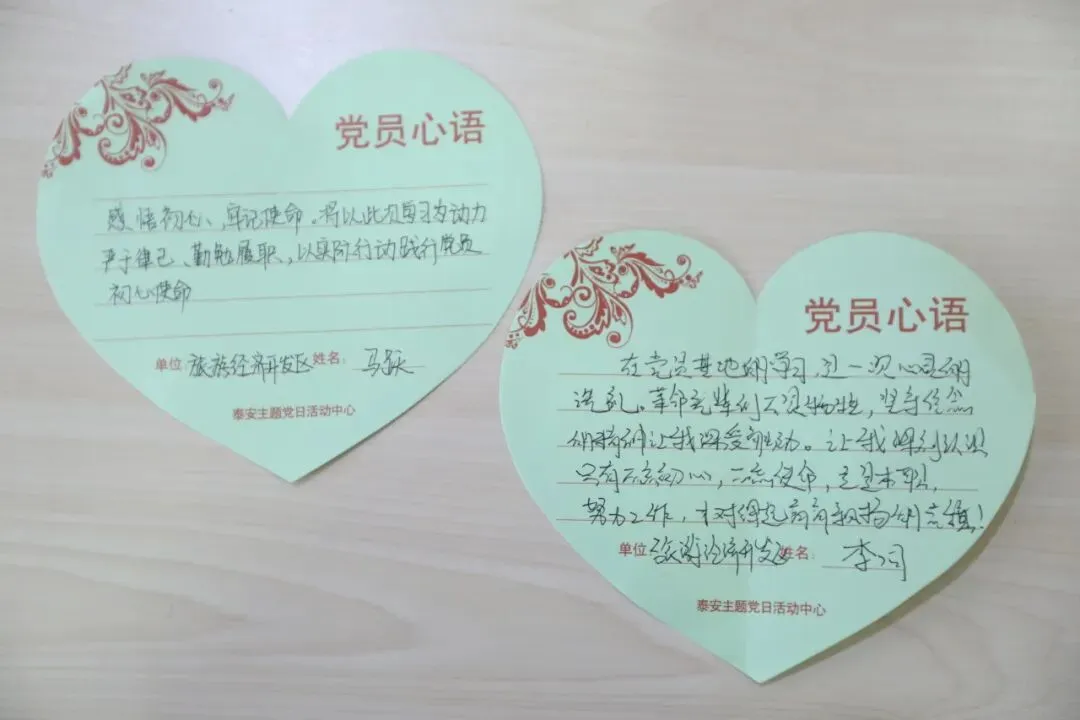 党员心语
感悟初心、牢记使命。将以此次学习为动力
严于律己、勤勉履职,以实际行动践行党员
初心使命
单位 旅游经济开发区 姓名: 马跃
泰安主题党日活动中心
党员心语
在党员基地的学习,是一次心灵的
洗礼。革命先辈们不畏牺牲,坚守信念
的精神让我深受触动。让我深刻认识
只有不忘初心,牢记使命,立足本职,
努力工作,才对得起前辈的
单位 经济开发区 姓名: 李
泰安主题党日活动中心